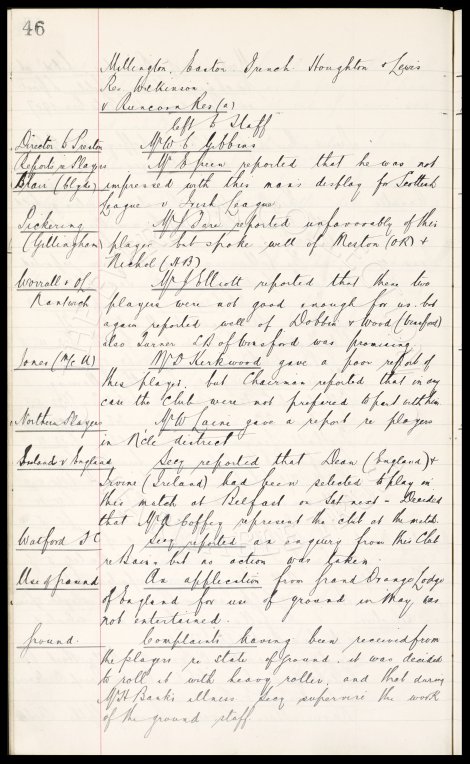 46
Millington. Easton. French Houghton & Lewis
Re. Wilkinson
v Runcorn Res (a)
left to Staff
Director to Preston Mr W C Gibbins
Reports re Players Mr C Green reported that he was not
Blair (Clyde) impressed with this mans display for Scottish
League v Irish League
Pickering Mr J Dare reported unfavorably of this
(Gillingham) player but spoke well of Meston (OR) &
Nichol (HB)
Worrall & of Mr J Elliott reported that these two
Nantwich players were not good enough for us. but
again reported well of Dobbin & Wood (Winsford)
also Turner LB of Winsford was promising
Jones (M/c U) Mr D Kirkwood gave a poor report of
this player. but Chairman reported that in any
case the Club were not prepared to part with him
Northern Players Mr W Laine gave a report re players
in N'cle district
Ireland v England Secy reported that Dean (England) &
Irvine (Ireland) had been selected to play in
this match at Belfast on Sat next - Decided
that Mr A Coffey represent the club at the match.
Watford F C Secy reported an enquiry from this Club
re but no action was taken.
Use of Ground An application from Grand Orange Lodge
of England for use of ground in May was
not entertained.
Ground. Complaints having been received from
the players re state of ground. it was decided
to roll it with heavy roller. and that during
Mr H Banks illness Secy supervise the work
of the ground staff.